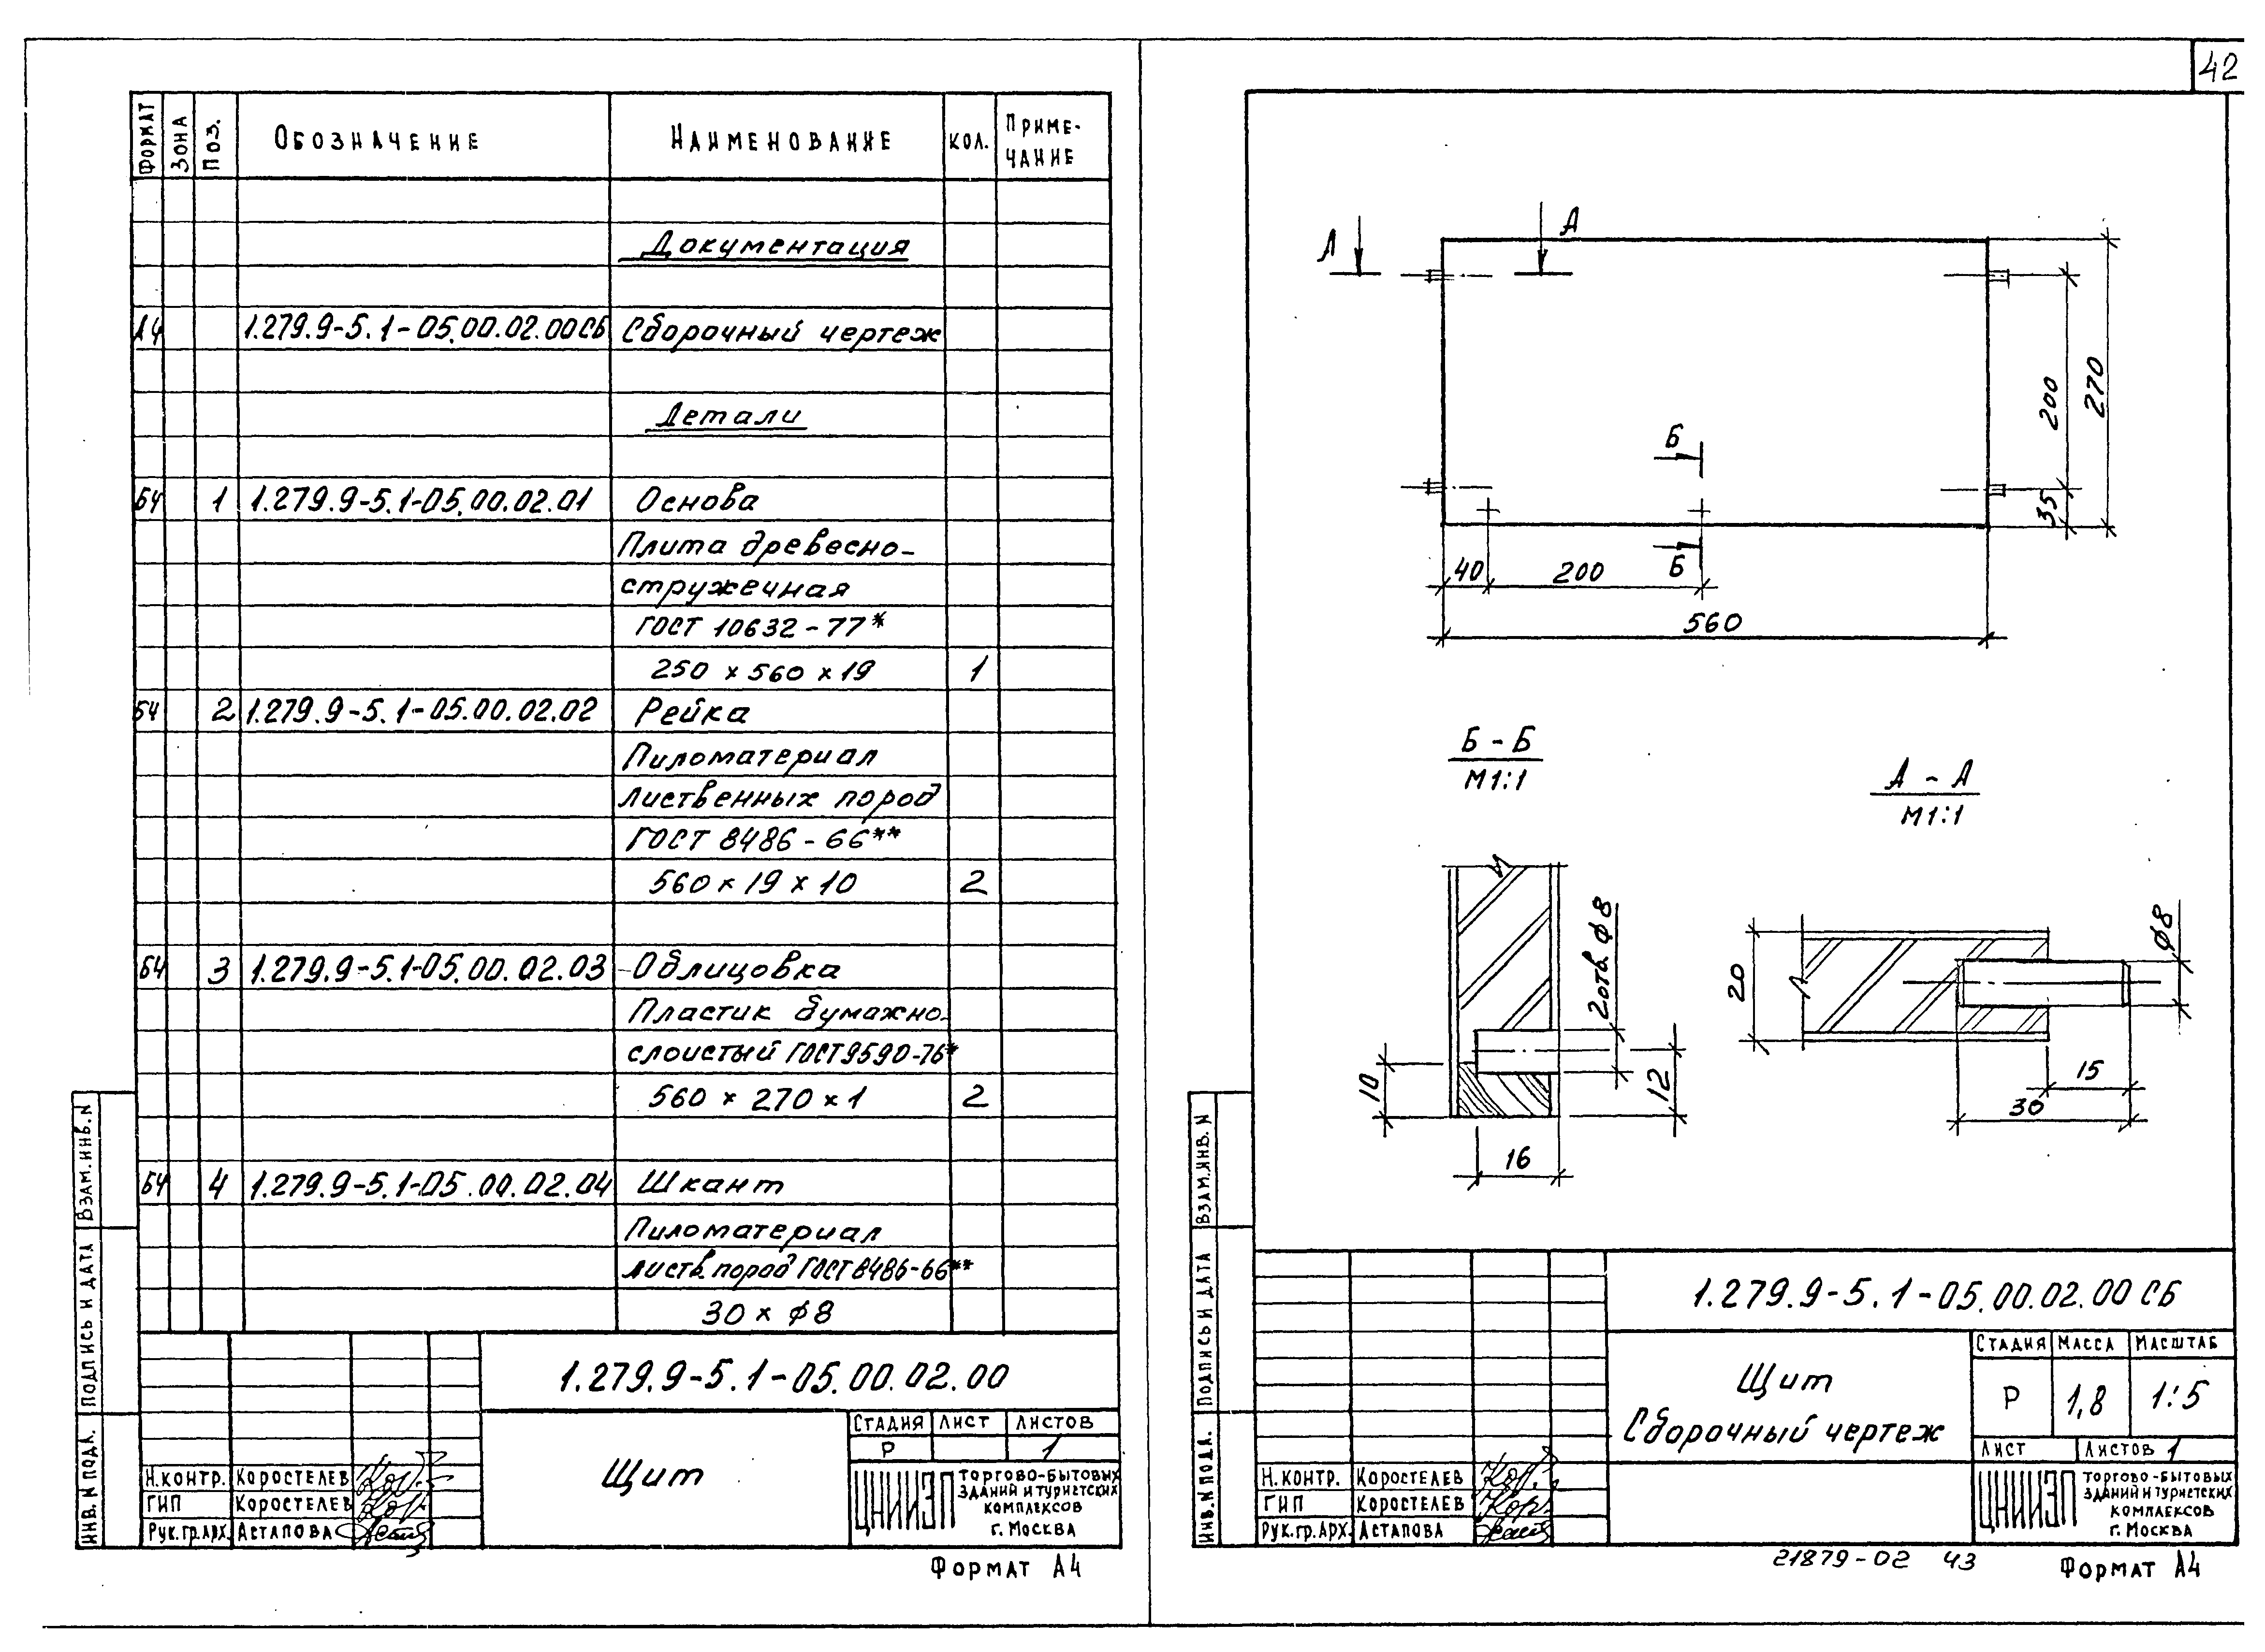 42
ФОРМАТ ЗОНА ПОЗ. ОБОЗНАЧЕНИЕ НАИМЕНОВАНИЕ КОЛ. ПРИМЕ-
ЧАНИЕ
Документация
А4 1.279.9-5.1-05.00.02.00СБ Сборочный чертеж
Детали
Б4 1 1.279.9-5.1-05.00.02.01 Основа
Плита древесно-
стружечная
ГОСТ 10632-77*
250 x 560 x 19 1
Б4 2 1.279.9-5.1-05.00.02.02 Рейка
Пиломатериал
лиственных пород
ГОСТ 8486-66**
560 x 19 x 10 2
Б4 3 1.279.9-5.1-05.00.02.03 Облицовка
Пластик бумажно-
слоистый ГОСТ 9590-76*
560 x 270 x 1 2
Б4 4 1.279.9-5.1-05.00.02.04 Шкант
Пиломатериал
листв. пород ГОСТ 8486-66**
30 x ϕ8
ВЗАМ.ИНВ.N
ПОДПИСЬ И ДАТА
ИНВ.N ПОДЛ.
1.279.9-5.1-05.00.02.00
Щит
СТАДИЯ ЛИСТ ЛИСТОВ
Р 1
Н.КОНТР. КОРОСТЕЛЕВ
ГИП КОРОСТЕЛЕВ
РУК.ГР.АРХ. АСТАПОВА
ЦНИИЭП
ТОРГОВО-БЫТОВЫХ
ЗДАНИЙ И ТУРИСТСКИХ
КОМПЛЕКСОВ
Г. МОСКВА
ФОРМАТ А4
А А
Б
Б
200
270
35
40 200
560
Б - Б
М1:1
А - А
М1:1
2отв. ϕ8
10
12
16
20
ϕ8
15
30
ВЗАМ.ИНВ.N
ПОДПИСЬ И ДАТА
ИНВ.N ПОДЛ.
1.279.9-5.1-05.00.02.00 СБ
Щит
Сборочный чертеж
СТАДИЯ МАССА МАСШТАБ
Р 1,8 1:5
ЛИСТ ЛИСТОВ 1
Н.КОНТР. КОРОСТЕЛЕВ
ГИП КОРОСТЕЛЕВ
РУК.ГР.АРХ. АСТАПОВА
ЦНИИЭП
ТОРГОВО-БЫТОВЫХ
ЗДАНИЙ И ТУРИСТСКИХ
КОМПЛЕКСОВ
Г. МОСКВА
21879-02 43
ФОРМАТ А4